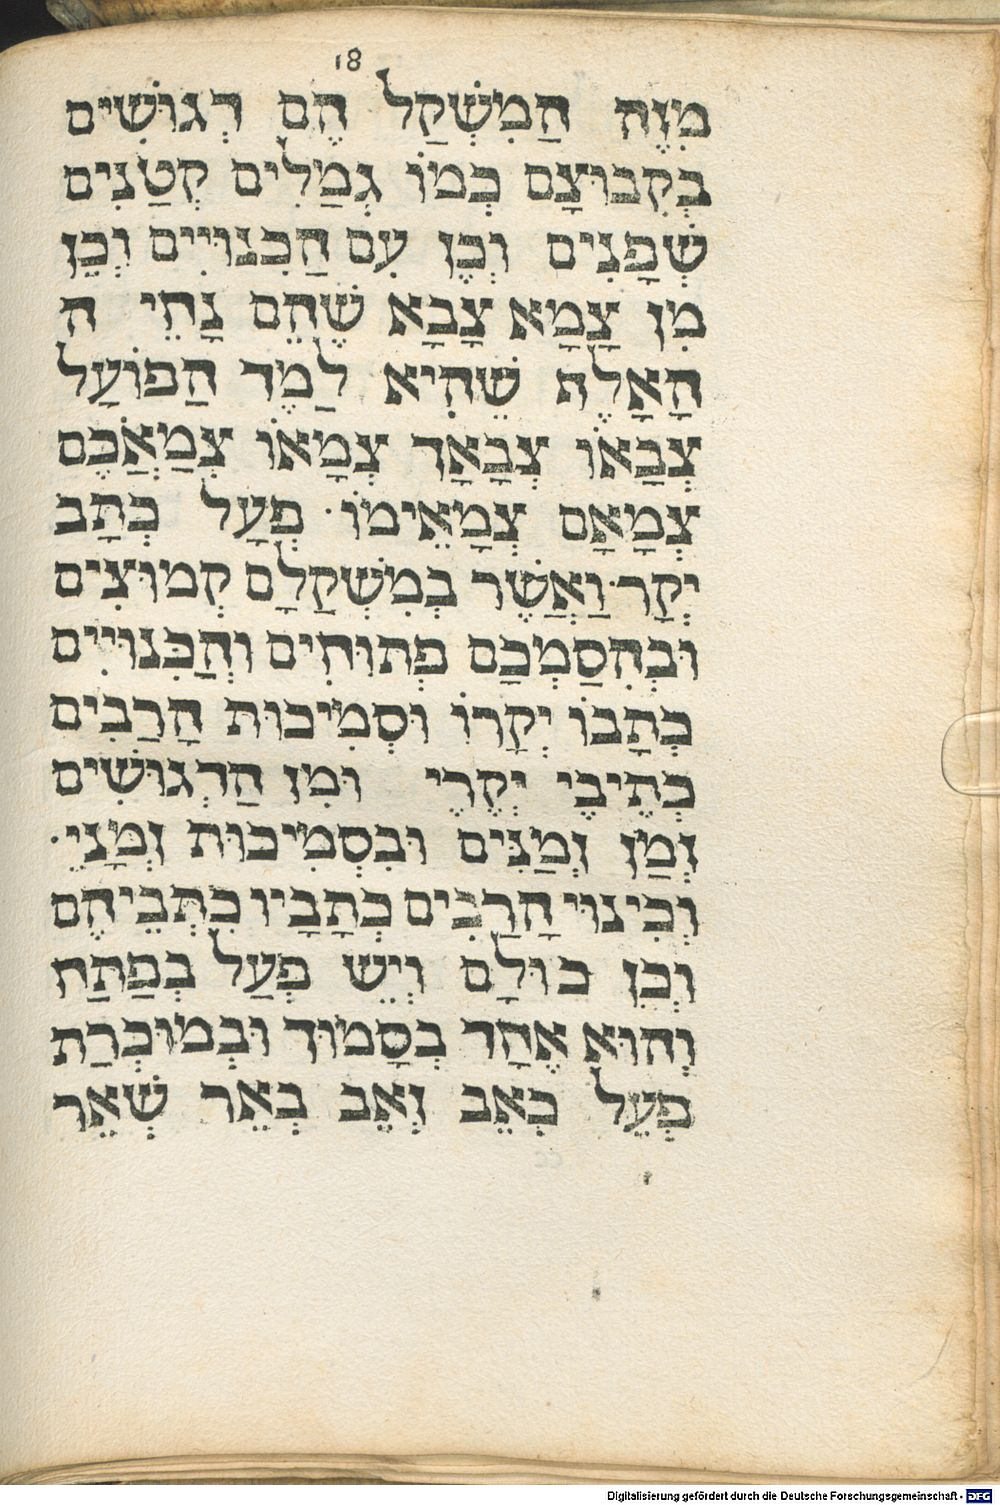 18
מִזֶּה הַמִּשְׁקַל הֶם דְגוּשִׁים
בְּקִבוּצָם כְּמוֹ גְמַלִים קְטַנִים
שְׁפָנִים וְכֶן עִם הַכִנוּיִים וְכֵן
מִן צָמָא צָבָא שֶׁהֵם נָחֵי ה
הָאָלֶף שֶׁהִיא לַמֶד הַפוֹעַל
צְבָאוֹ צְבָאָךְ צְמָאוֹ צְמַאֲכֶם
צְמָאָם צְמָאֵימוֹ· פְּעָל כְּתָב
יְקָר· וַאֲשֶׁר בְּמִשְׁקַלָם קְמוּצִים
וּבְהִסַמְכָם פְּתוּחִים וְהַכִּנוּיִים
כְּתָבוֹ יְקָרוֹ וּסְמִיכוּת הָרַבִים
כְּתָיבֶי יְקֶרֶי וּמִן הַדְגוּשִׁים
זְמַן זְמַנִּים וּבִסְמִיכוּת זְמָנֵי·
וְכִינוּי הָרַבִים כְּתָבָיו כִתְּבֵיהֶם
וְכֵן כוּלָם וְיֵשׁ פְּעַל בְּפַתַח
וְהוּא אֶחָד בְּסָמוּךְ וּבְמוּכְרַת
פְּעֵל כְּאֵב זְאֵב בְּאֵר שְׁאֵר
Digitalisierung gefördert durch die Deutsche Forschungsgemeinschaft - DFG